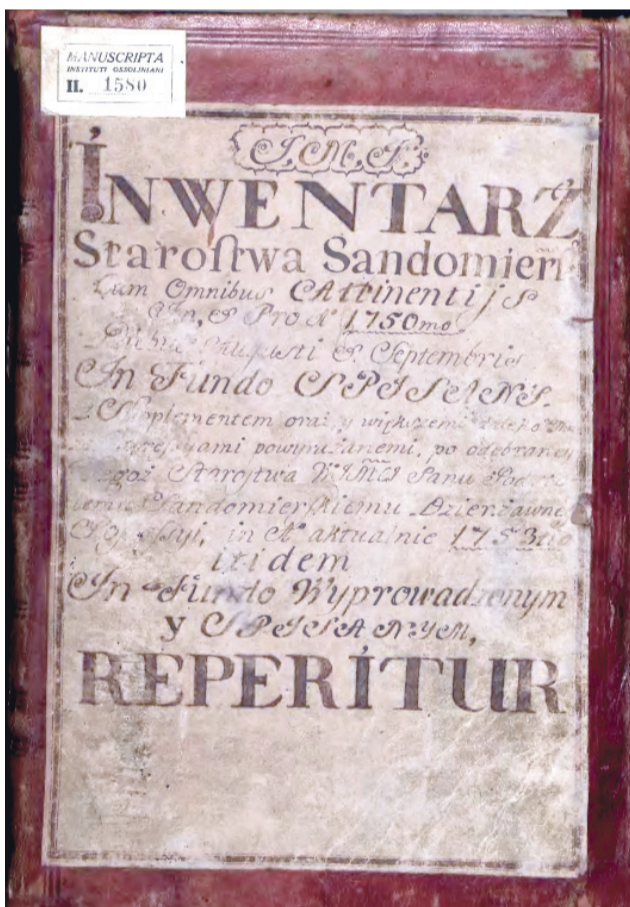 MANUSCRIPTA
INSTITUTI OSSOLINIANI
II. 1580
J. M. J.
INWENTARZ
Staroſtwa Sandomierſ
Cum Omnibus Attinentijs
In, & Pro Aº 1750mo
Augusti & Septembris
In Fundo SPISANY.
Suplementem oraz y większemi daleko
powyrażanemi, po odebraney
Staroſtwa Panu
Sandomierſkiemu Dzierżawney
in Aº aktualnie 1753tio
itidem
In Fundo Wyprowadzonym
y SPISANYM,
REPERITUR